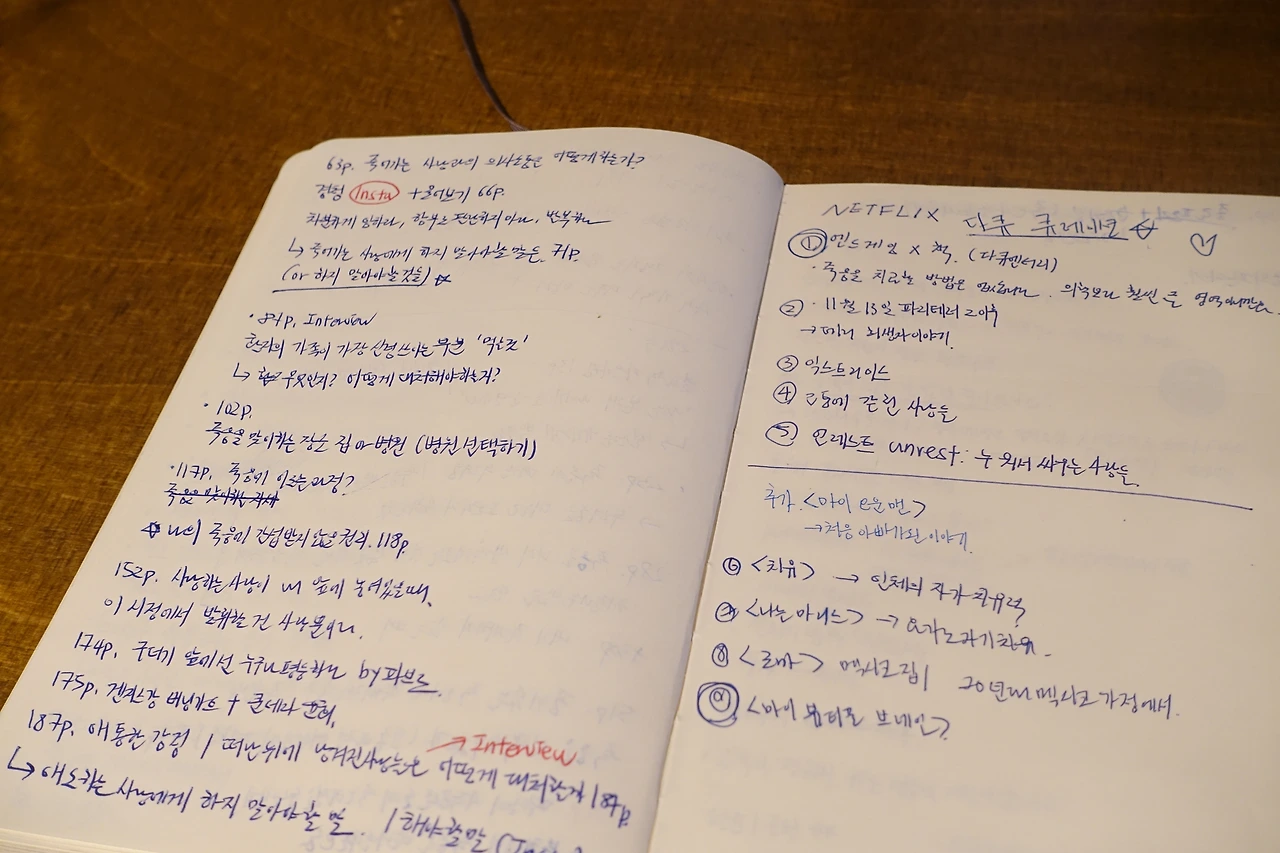 63p. 죽어가는 사람과의 의사소통은 어떻게 하는가?
경험 Insta + 물어보기 66p.
차분하게 말하라, 함부로 판단하지 마라, 반복하라
↳ 죽어가는 사람에게 하지 말아야할 말들. 71p.
(or 하지 말아야할 것들)
• 87p. Interview
환자의 가족이 가장 신경쓰이는 부분 '먹는것'
↳ 무엇인지? 어떻게 대처해야하는지?
• 102p.
죽음을 맞이하는 장소 집 or 병원 (병원선택하기)
• 117p. 죽음에 이르는 과정?
나의 죽음에 간섭받지 않을 권리. 118p.
152p. 사랑하는 사람이 내 앞에 놓여있을때,
이 시점에서 발휘할 건 사랑뿐이다.
174p. 구더기 앞에선 누구나 평등하다 by 파브르.
175p. 갠지스강 버닝가트 +
187p. 애통한 감정 / 떠난 뒤에 남겨진 사람들은 어떻게 대처할까 187p.
→ Interview
↳ 애도하는 사람에게 하지 말아야 할 말. / 해야할말
NETFLIX 다큐 큐레네이션
① 엔드게임 X 책. (다큐멘터리)
• 죽음을 치료할 방법은 없습니다. 의학보다 훨씬 큰 영역이니만큼
② • 11월 13일 파리테러 그 이후
→ 테러 희생자 이야기.
③ 익스트리미스
④ 고통에 갈린 사람들
⑤ 언레스트 unrest: 누워서 싸우는 사람들
추가. <마이 >
→ 처음 아빠가 된 이야기.
⑥ <치유> → 인체의 자가치유력
<나는 마리스> → 요가는 자기치유.
⑧ <로마> 멕시코 집 | 70년대 멕시코 가정에서.
⑨ <마이 뷰티풀 브레인>